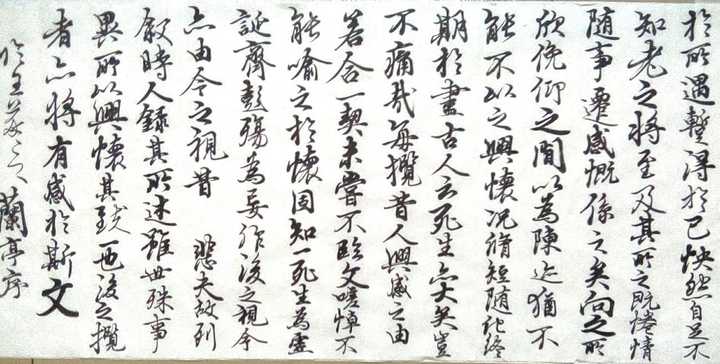 於所遇蹔得於己怏然自足不
知老之將至及其所之既惓情
随事遷感慨係之矣向之所
欣俛仰之閒以為陳迹猶不
能不以之興懷況脩短随化終
期於盡古人云死生亦大矣豈
不痛哉每攬昔人興感之由
若合一契未嘗不臨文嗟悼不
能喻之於懷固知一死生為虛
誕齊彭殤為妄作後之視今
亦由今之視昔 悲夫故列
叙時人錄其所述雖世殊事
異所以興懷其致一也後之攬
者亦將有感於斯文
臨王羲之 蘭亭序